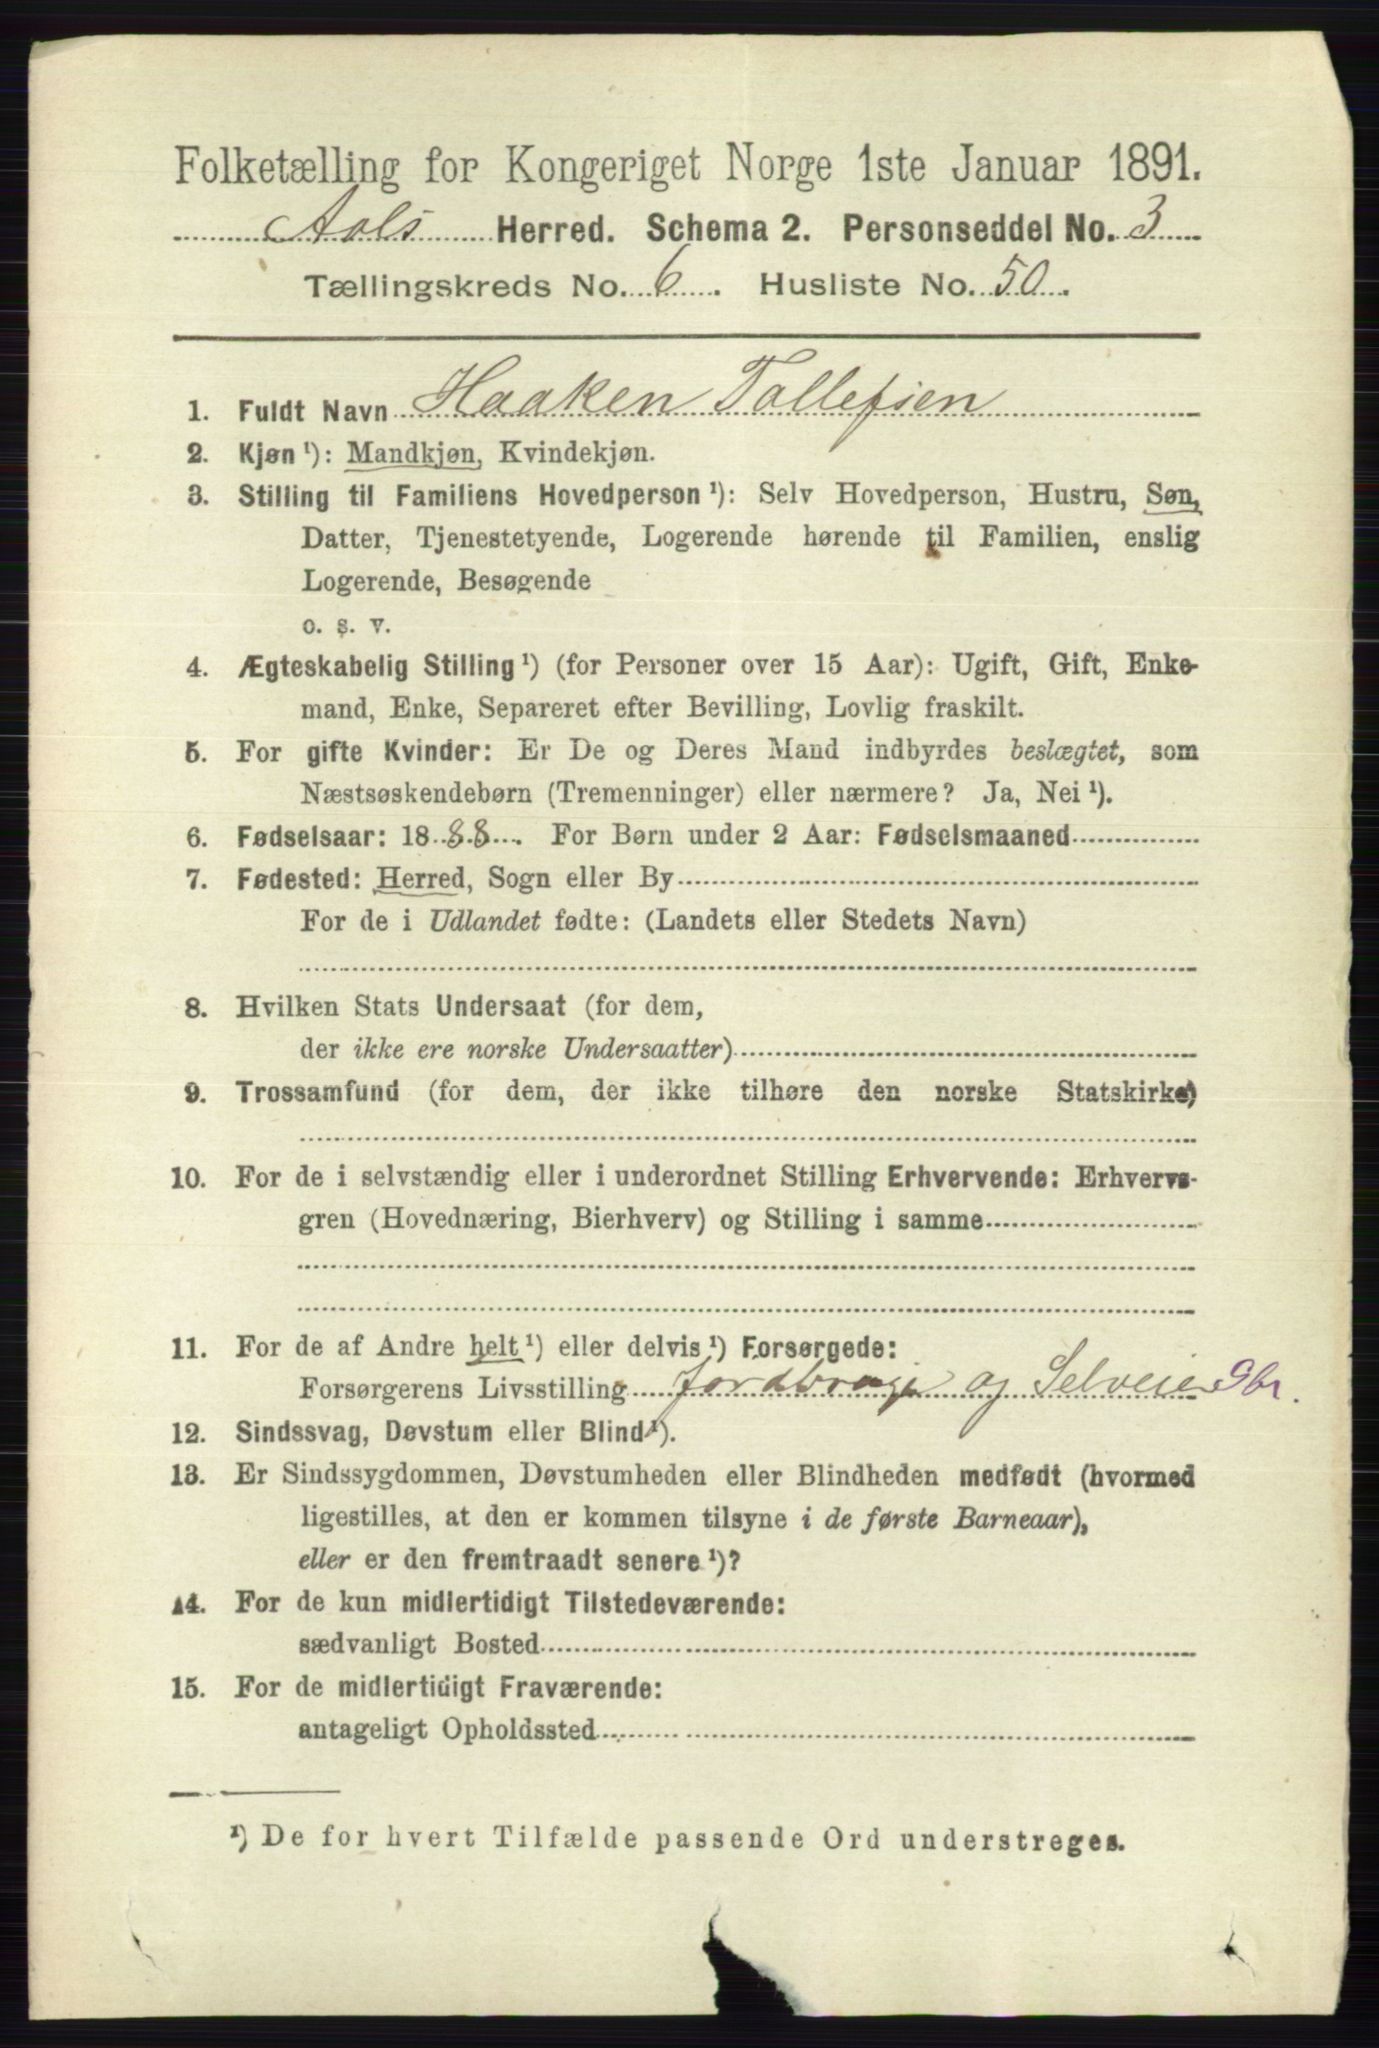 Folketælling for Kongeriget Norge 1ste Januar 1891.
Aals Herred. Schema 2. Personseddel No. 3
Tællingskreds No. 6. Husliste No. 50.
1. Fuldt Navn Haaken Tollefsen
2. Kjøn ¹): Mandkjøn, Kvindekjøn.
3. Stilling til Familiens Hovedperson ¹): Selv Hovedperson, Hustru, Søn,
Datter, Tjenestetyende, Logerende hørende til Familien, enslig
Logerende, Besøgende
o. s. v.
4. Ægteskabelig Stilling ¹) (for Personer over 15 Aar): Ugift, Gift, Enke-
mand, Enke, Separeret efter Bevilling, Lovlig fraskilt.
5. For gifte Kvinder: Er De og Deres Mand indbyrdes beslægtet, som
Næstsøskendebørn (Tremenninger) eller nærmere? Ja, Nei ¹).
6. Fødselsaar: 1888. For Børn under 2 Aar: Fødselsmaaned
7. Fødested: Herred, Sogn eller By
For de i Udlandet fødte: (Landets eller Stedets Navn)
8. Hvilken Stats Undersaat (for dem,
der ikke ere norske Undersaatter)
9. Trossamfund (for dem, der ikke tilhøre den norske Statskirke)
10. For de i selvstændig eller i underordnet Stilling Erhvervende: Erhvervs-
gren (Hovednæring, Bierhverv) og Stilling i samme
11. For de af Andre helt ¹) eller delvis ¹) Forsørgede:
Forsørgerens Livsstilling Jordbrug og Selveier Gbr.
12. Sindssvag, Døvstum eller Blind ¹).
13. Er Sindssygdommen, Døvstumheden eller Blindheden medfødt (hvormed
ligestilles, at den er kommen tilsyne i de første Barneaar),
eller er den fremtraadt senere ¹)?
14. For de kun midlertidigt Tilstedeværende:
sædvanligt Bosted
15. For de midlertidigt Fraværende:
antageligt Opholdssted
¹) De for hvert Tilfælde passende Ord understreges.